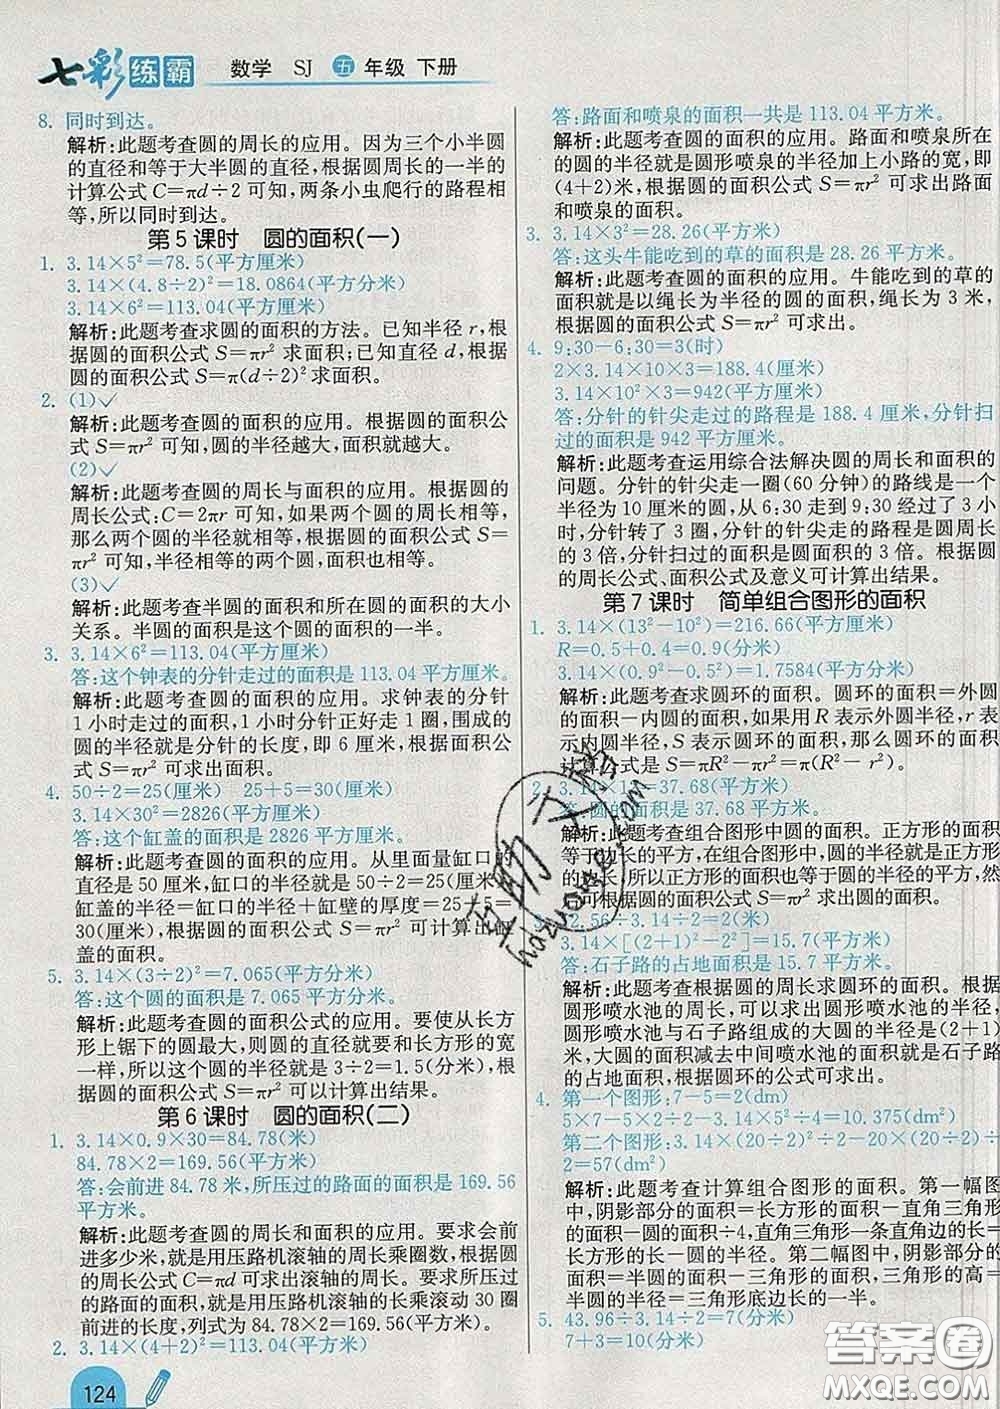 七彩练霸 数学 SJ 五 年级 下册
8. 同时到达。
解析:此题考查圆的周长的应用。因为三个小半圆
的直径和等于大半圆的直径,根据圆周长的一半的
计算公式 C=πd÷2 可知,两条小虫爬行的路程相
等,所以同时到达。
第 5 课时 圆的面积(一)
1. 3.14×5²=78.5(平方厘米)
3.14×(4.8÷2)²=18.0864(平方厘米)
3.14×6²=113.04(平方厘米)
解析:此题考查求圆的面积的方法。已知半径 r,根
据圆的面积公式 S=πr² 求面积;已知直径 d,根据
圆的面积公式 S=π(d÷2)²求面积。
2. (1)✓
解析:此题考查圆的面积的应用。根据圆的面积公
式 S=πr² 可知,圆的半径越大,面积就越大。
(2)✓
解析:此题考查圆的周长与面积的应用。根据圆的
周长公式:C=2πr 可知,如果两个圆的周长相等,
那么两个圆的半径就相等,根据圆的面积公式 S=
πr² 可知,半径相等的两个圆,面积也相等。
(3)✓
解析:此题考查半圆的面积和所在圆的面积的大小
关系。半圆的面积是这个圆的面积的一半。
3. 3.14×6²=113.04(平方厘米)
答:这个钟表的分针走过的面积是 113.04 平方厘米。
解析:此题考查圆的面积的应用。求钟表的分针
1 小时走过的面积,1 小时分针正好走 1 圈,围成的
圆的半径就是分针的长度,即 6 厘米,根据圆的面积公
式 S=πr² 可求出面积。
4. 50÷2=25(厘米) 25+5=30(厘米)
3.14×30²=2826(平方厘米)
答:这个缸盖的面积是 2826 平方厘米。
解析:此题考查圆的面积的应用。从里面量缸口的
直径是 50 厘米,缸口的半径就是 50÷2=25(厘米),
缸盖的半径=缸口的半径+缸壁的厚度=25+5=
30(厘米),根据圆的面积公式 S=πr² 可计算出缸
盖的面积。
5. 3.14×(3÷2)²=7.065(平方分米)
答:这个圆的面积是 7.065 平方分米。
解析:此题考查圆的面积公式的应用。要使从长方
形上锯下的圆最大,则圆的直径就要和长方形的宽
一样,所以这个圆的半径就是 3÷2=1.5(分米),根
据圆的面积公式 S=πr² 可以计算出结果。
第 6 课时 圆的面积(二)
1. 3.14×0.9×30=84.78(米)
84.78×2=169.56(平方米)
答:会前进 84.78 米,所压过的路面的面积是 169.56
平方米。
解析:此题考查圆的周长和面积的应用。要求会前
进多少米,就是用压路机滚轴的周长乘圈数,根据圆
的周长公式 C=πd 可求出滚轴的周长。要求所压过
的面积,就是用压路机滚轴的长乘滚动 30 圈
前进的长度,列式为 84.78×2=169.56(平方米)。
2. 3.14×(4+2)²=113.04(平方米)
124
答:路面和喷泉的面积一共是 113.04 平方米。
解析:此题考查圆的面积的应用。路面和喷泉所在
的圆的半径就是圆形喷泉的半径加上小路的宽,即
(4+2)米,根据圆的面积公式 S=πr² 可求出路面
和喷泉的面积。
3. 3.14×3²=28.26(平方米)
答:这头牛能吃到的草的面积是 28.26 平方米。
解析:此题考查圆的面积的应用。牛能吃到的草的
面积就是以绳长为半径的圆的面积,绳长为 3 米,
根据圆的面积公式 S=πr² 可求出。
4. 9:30-6:30=3(时)
2×3.14×10×3=188.4(厘米)
3.14×10²×3=942(平方厘米)
答:分针的针尖走过的路程是 188.4 厘米,分针扫
过的面积是 942 平方厘米。
解析:此题考查运用综合法解决圆的周长和面积的
问题。分针的针尖走一圈(60 分钟)的路线是一个
半径为 10 厘米的圆,从 6:30 走到 9:30 经过了 3 小
时,分针转了 3 圈,分针的针尖走的路程是圆周长
的 3 倍,分针扫过的面积是圆面积的 3 倍。根据圆
的周长公式、面积公式及意义可计算出结果。
第 7 课时 简单组合图形的面积
1. 3.14×(13²-10²)=216.66(平方厘米)
R=0.5+0.4=0.9(分米)
3.14×(0.9²-0.5²)=1.7584(平方分米)
解析:此题考查求圆环的面积。圆环的面积=外圆
的面积-内圆的面积,如果用 R 表示外圆半径,r 表
示内圆半径,S 表示圆环的面积,那么圆环的面积
计算公式是 S=πR²-πr²=π(R²- r²)。
2. 3.14×12=37.68(平方米)
答:圆的面积是 37.68 平方米。
解析:此题考查组合图形中圆的面积。正方形的面积
等于边长的平方,在组合图形中,圆的半径=正方形的
边长,所以正方形的面积也等于圆的半径的平方,然
后可根据圆的面积公式 S=πr² 求出圆的面积。
3. 12.56÷3.14÷2=2(米)
3.14×[(2+1)²-2²]=15.7(平方米)
答:石子路的占地面积是 15.7 平方米。
解析:此题考查根据圆的周长求圆环的面积。根据
圆形喷水池的周长,可以求出圆形喷水池的半径,
圆形喷水池与石子路组成的大圆的半径是(2+1)
米,大圆的面积减去中间喷水池的面积就是石子路
的占地面积,根据圆的面积公式可求出。
4. 第一个图形:7-5=2(dm)
5×7-5×2÷2-3.14×5²÷4=10.375(dm²)
第二个图形:3.14×(20÷2)²÷2-20×(20÷2)÷
2=57(dm²)
解析:此题考查计算组合图形的面积。第一幅图
中,阴影部分的面积=长方形的面积-直角三角形
的面积-圆的面积÷4,直角三角形一条直角边的长=
长方形的长-圆的半径。第二幅图中,阴影部分的
面积=半圆的面积-三角形的面积,三角形的高=
半圆的半径=三角形底边长的一半。
5. 43.96÷3.14÷2=7(分米)
7+3=10(分米)
互助文档
hdzuoye.com
答案圈
MXQE.COM